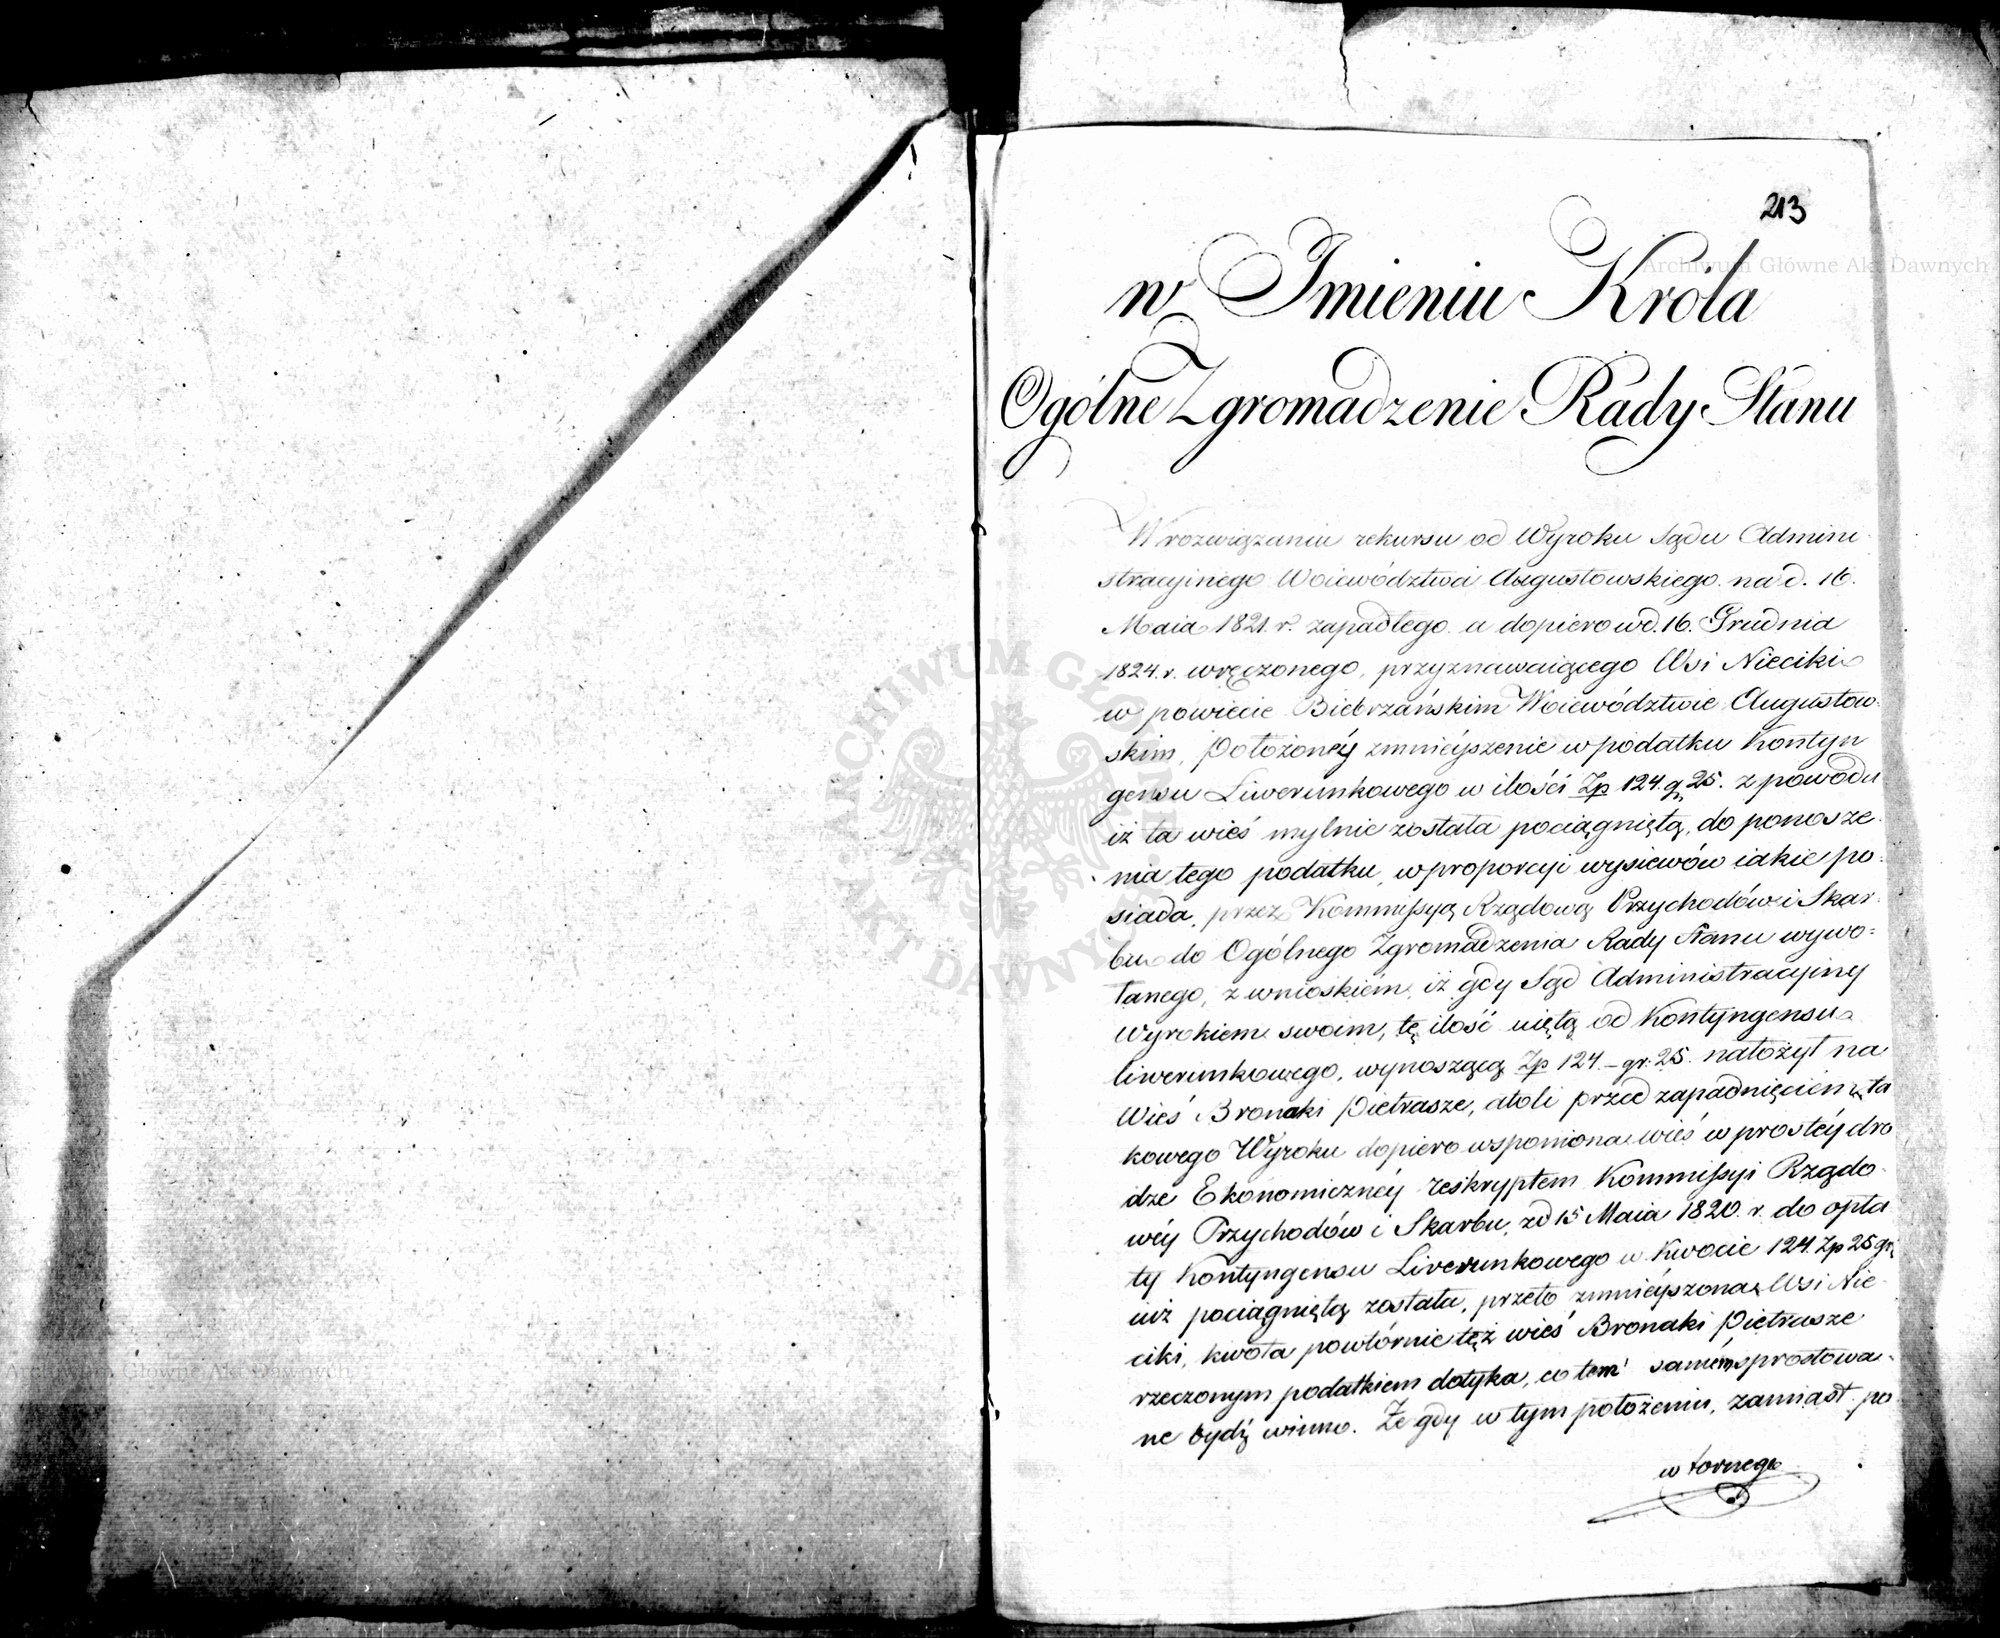 213
w Imieniu Króla
Ogólne Zgromadzenie Rady Stanu
W rozwiązaniu rekursu od Wyroku Sądu Admini-
stracyinego Woiewództwa Augustowskiego na d. 16.
Maia 1821. r. zapadłego a dopiero w d. 16. Grudnia
1824. r. wręczonego, przyznawaiącego Wsi Nieciki
w powiecie Biebrzańskim Woiewództwie Augustow-
skim, Położonéy zmnieyszenie w podatku Kontyn
gensu Liwerunkowego w ilości Zp 124. g 25. z powodu
iż ta wieś mylnie została pociągniętą, do ponosze-
nia tego podatku, w proporcyi wysiewów iakie po-
siada, przez Kommissyą Rządową Przychodów i Skar-
bu do Ogólnego Zgromadzenia Rady Stanu wywo-
łanego, z wnioskiem, iż gdy Sąd Administracyiny
Wyrokiem swoim, tę ilość uiętą od Kontyngensu
liwerunkowego, wynoszącą Zp 124. – gr. 25. nałożył na
Wieś Bronaki Pietrasze, atoli przed zapadnięciem ta
kowego Wyroku dopiero wspomniona wieś w prostéy dro
dze Ekonomicznéy reskryptem Kommissyi Rządo-
wéy Przychodów i Skarbu, z d 15 Maia 1820. r. do opła
ty Kontyngensu Liwerunkowego w Kwocie 124. Zp 25 gr
iuż pociągniętą została, przeto zmnieyszona Wsi Nie-
ciki, kwota powtórnie tęż wieś Bronaki Pietrasze
rzeczonym podatkiem dotyka, co tem samém sprostowa-
ne bydź winno. Że gdy w tym położeniu, zamiast po
wtórnego
Archiwum Główne Akt Dawnych
ARCHIWUM GŁÓWNE AKT DAWNYCH
Archiwum Główne Akt Dawnych